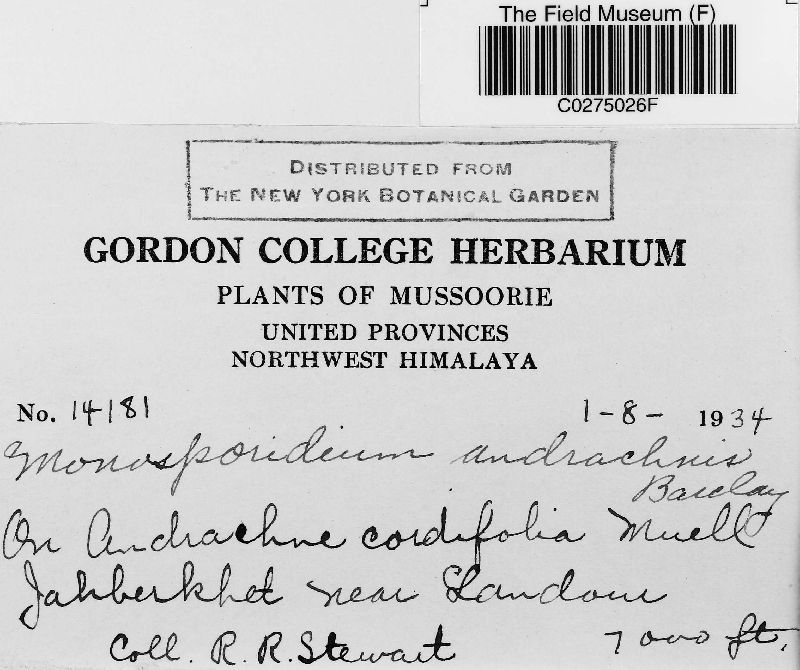 The Field Museum (F)
C0275026F
DISTRIBUTED FROM
THE NEW YORK BOTANICAL GARDEN
GORDON COLLEGE HERBARIUM
PLANTS OF MUSSOORIE
UNITED PROVINCES
NORTHWEST HIMALAYA
No. 14181 1-8- 1934
Monosporidium andrachnis
Barclay
On Andrachne cordifolia Muell
Jahberkhet near Landour
Coll. R. R. Stewart 7000 ft.